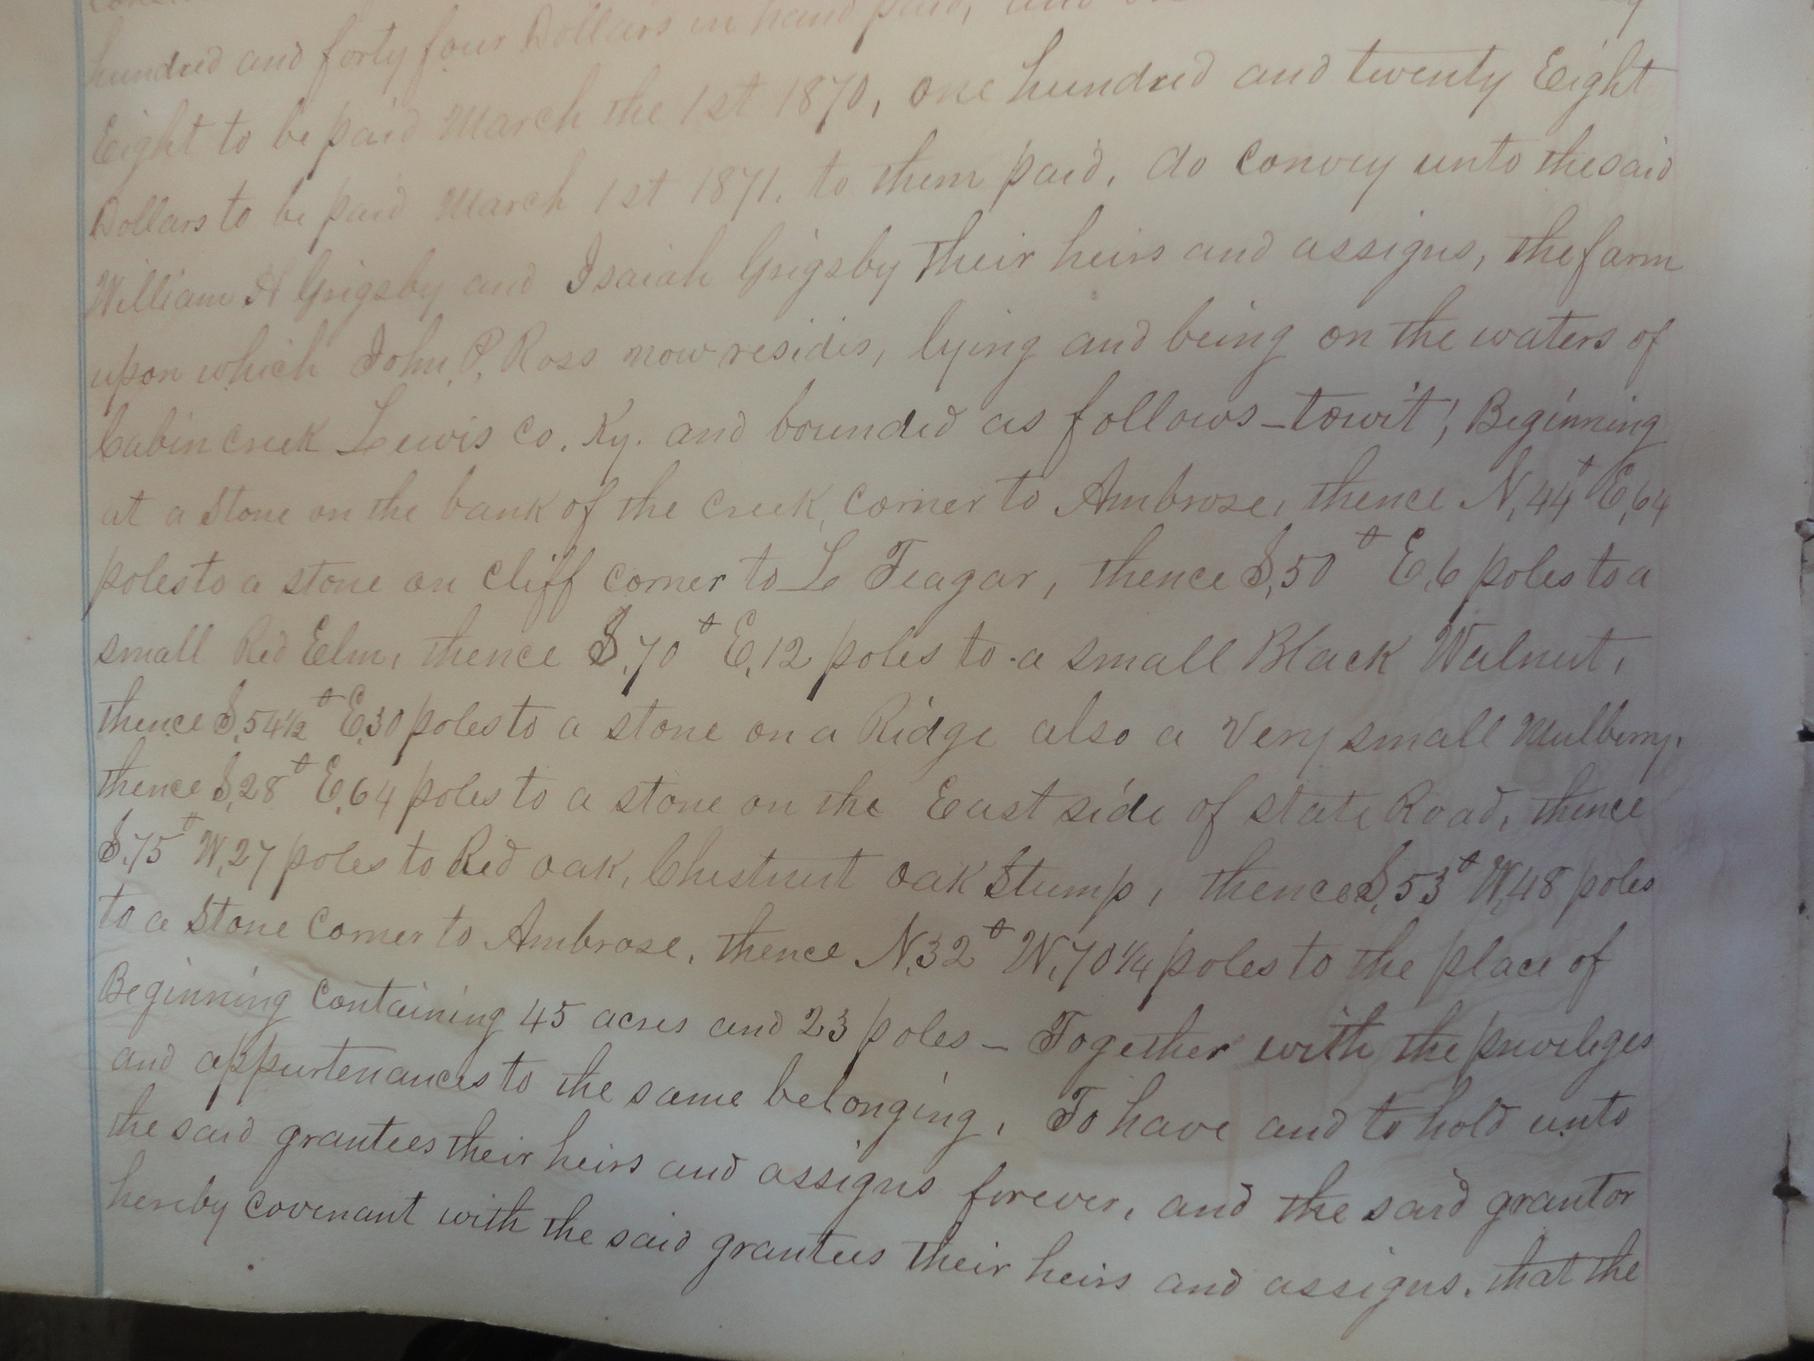 hundred and forty four Dollars in hand paid, and
Eight to be paid March the 1st 1870, one hundred and twenty Eight
Dollars to be paid March 1st 1871. to them paid, do convey unto the said
William H Grigsby and Isaiah Grigsby their heirs and assigns, the farm
upon which John P. Ross now resides, lying and being on the waters of
Cabin Creek Lewis Co. Ky. and bounded as follows - towit; Beginning
at a Stone on the bank of the creek, corner to Ambrose, thence N, 44° E, 64
poles to a stone on cliff corner to L Teagar, thence S, 50° E, 6 poles to a
small Red Elm, thence S, 70° E, 12 poles to a small Black Walnut,
thence S, 54½° E, 30 poles to a stone on a Ridge also a Very small Mulberry,
thence S, 28° E, 64 poles to a stone on the East side of state Road, thence
S, 75° W, 27 poles to Red oak, Chestnut oak Stump, thence S, 53° W, 48 poles
to a Stone Corner to Ambrose, thence N, 32° W, 70¼ poles to the place of
Beginning Containing 45 acres and 23 poles - Together with the privileges
and appurtenances to the same belonging, To have and to hold unto
the said grantees their heirs and assigns forever, and the said grantor
hereby covenant with the said grantees their heirs and assigns, that the